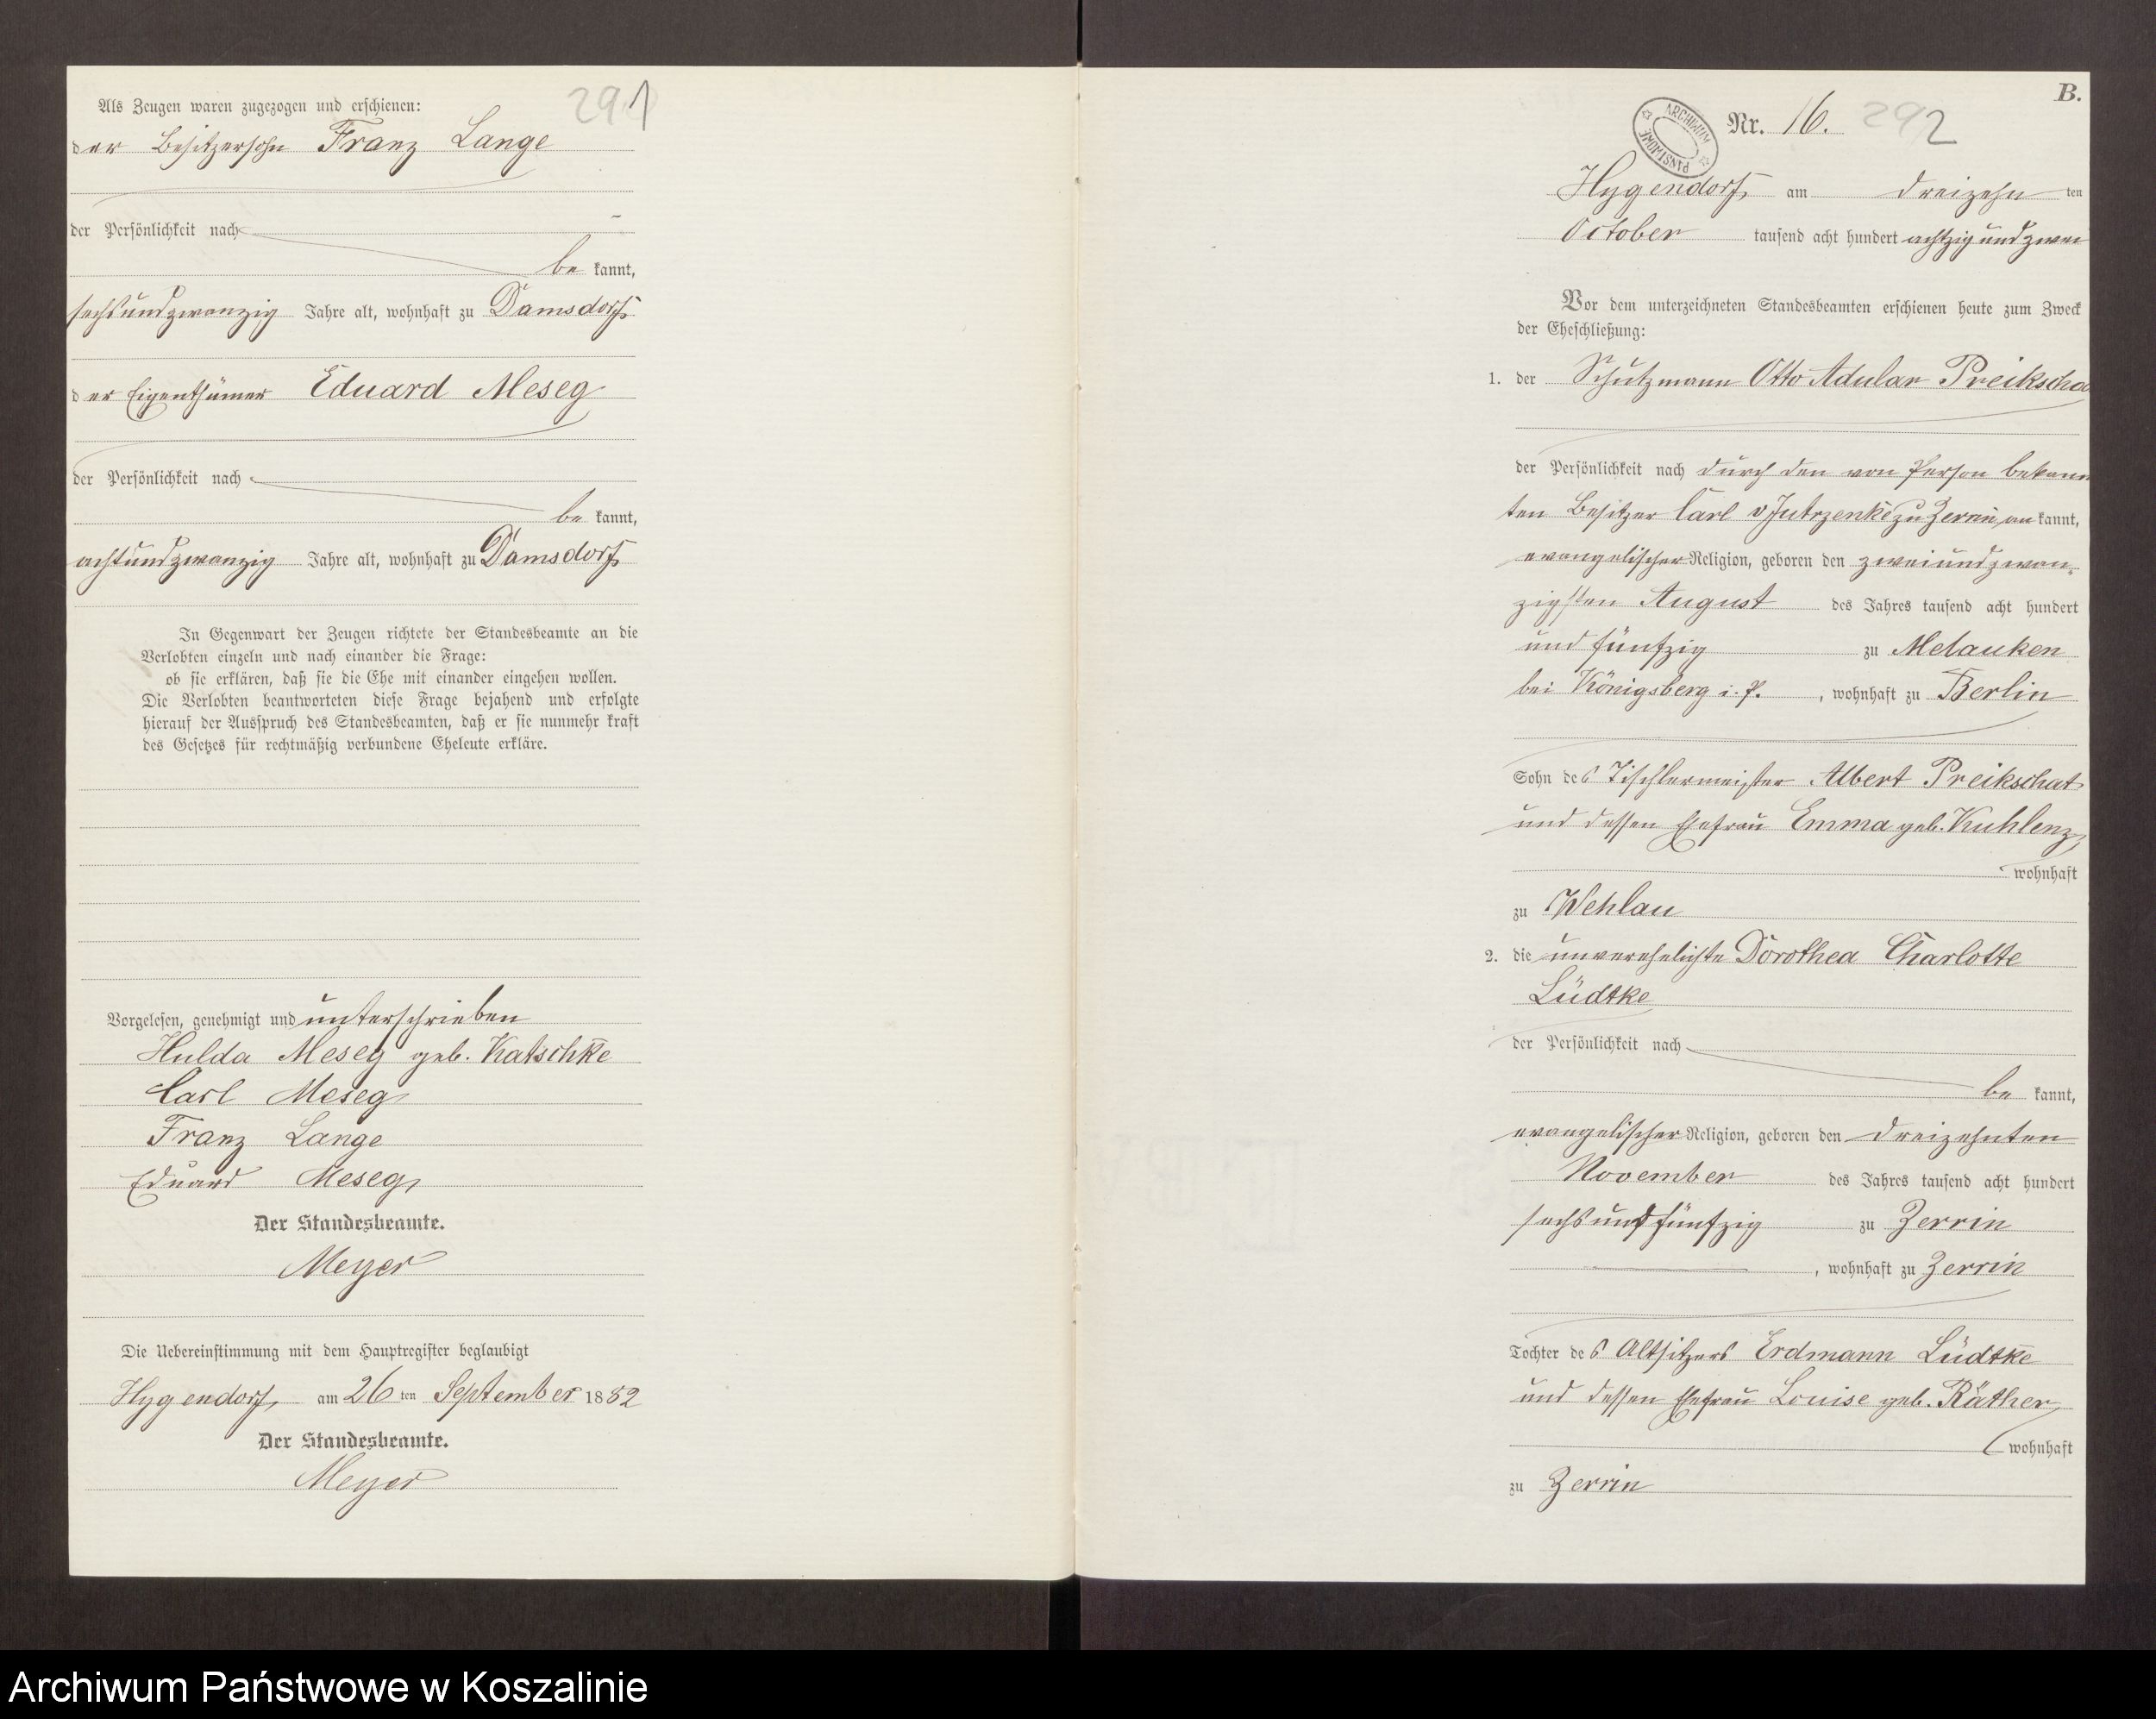 291
Als Zeugen waren zugezogen und erschienen:
der Besitzersohn Franz Lange
der Persönlichkeit nach
be kannt,
sechsundzwanzig Jahre alt, wohnhaft zu Damsdorf
der Eigenthümer Eduard Meseg
der Persönlichkeit nach
be kannt,
achtundzwanzig Jahre alt, wohnhaft zu Damsdorf
In Gegenwart der Zeugen richtete der Standesbeamte an die
Verlobten einzeln und nach einander die Frage:
ob sie erklären, daß sie die Ehe mit einander eingehen wollen.
Die Verlobten beantworteten diese Frage bejahend und erfolgte
hierauf der Ausspruch des Standesbeamten, daß er sie nunmehr kraft
des Gesetzes für rechtmäßig verbundene Eheleute erkläre.
Vorgelesen, genehmigt und unterschrieben
Hulda Meseg geb. Katschke
Carl Meseg
Franz Lange
Eduard Meseg
Der Standesbeamte.
Meyer
Die Uebereinstimmung mit dem Hauptregister beglaubigt
Hygendorf, am 26 ten September 1882
Der Standesbeamte.
Meyer
B.
ARCHIWUM PAŃSTWOWE
Nr. 16. 292
Hygendorf, am dreizehn ten
October tausend acht hundert achtzig und zwei
Vor dem unterzeichneten Standesbeamten erschienen heute zum Zweck
der Eheschließung:
1. der Schutzmann Otto Adular Preikscha
der Persönlichkeit nach durch den von Person bekann
ten Besitzer Carl v Jutrzenke zu Zerrin an kannt,
evangelischer Religion, geboren den zweiundzwan-
zigsten August des Jahres tausend acht hundert
und fünfzig zu Melauken
bei Königsberg i. P. , wohnhaft zu Berlin
Sohn des Tischlermeister Albert Preikschat
und dessen Ehefrau Emma geb. Kuhlenz,
wohnhaft
zu Wehlau
2. die unverehelichte Dorothea Charlotte
Lüdtke
der Persönlichkeit nach
be kannt,
evangelischer Religion, geboren den dreizehnten
November des Jahres tausend acht hundert
sechsundfünfzig zu Zerrin
, wohnhaft zu Zerrin
Tochter des Altsitzers Erdmann Lüdtke
und dessen Ehefrau Louise geb. Räther,
wohnhaft
zu Zerrin
Archiwum Państwowe w Koszalinie